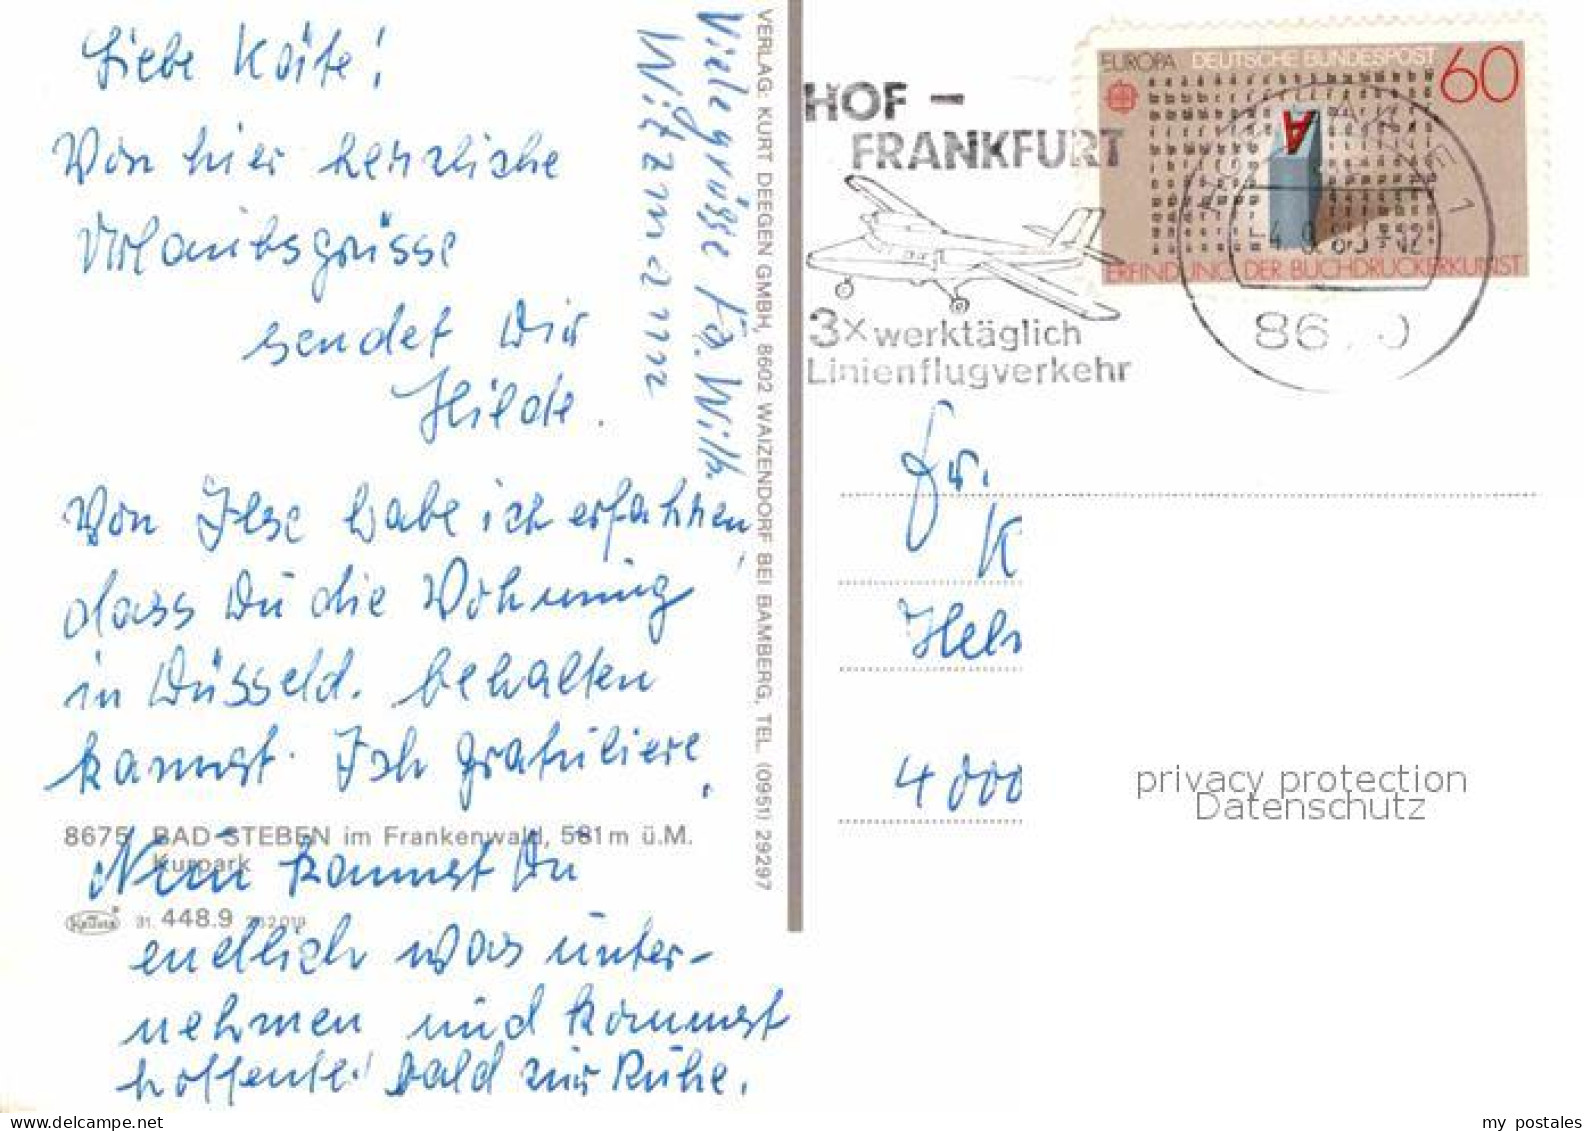 Liebe Käte!
Von hier herzliche
Urlaubsgrüsse
sendet Dir
Hilde.
Von Ilse habe ich erfahren,
dass Du die Wohnung
in Düsseld. behalten
kannst. Ich gratuliere.
Nun kannst Du
endlich was unter-
nehmen und kommst
hoffentl. bald zur Ruhe.
Viele grüsse Fa. Wilh.
Witzmann
8675 BAD STEBEN im Frankenwald, 581 m ü.M.
Kurpark
31. 448.9
VERLAG: KURT DEEGEN GMBH, 8602 WAIZENDORF BEI BAMBERG, TEL. (0951) 29297
HOF –
FRANKFURT
3x werktäglich
Linienflugverkehr
EUROPA DEUTSCHE BUNDESPOST 60
A
ERFINDUNG DER BUCHDRUCKERKUNST
1
Fr.
K
Hel
4000
privacy protection
Datenschutz
www.delcampe.net
my_postales